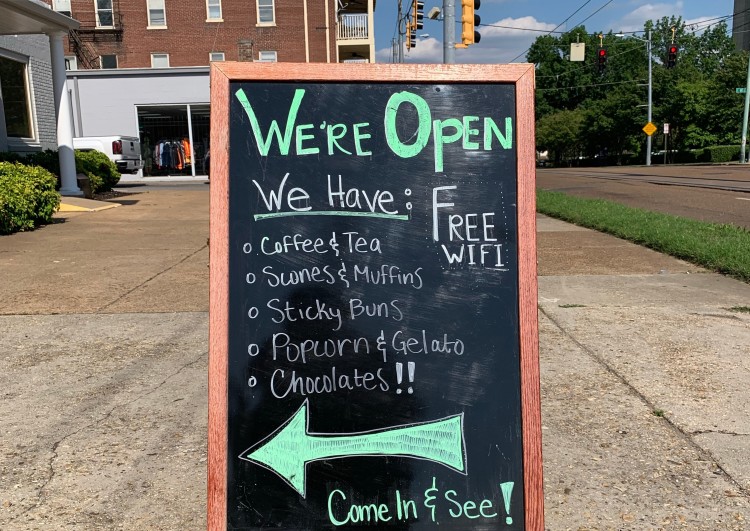 We're Open
We Have:
Free
WIFI
Coffee & Tea
Scones & Muffins
Sticky Buns
Popcorn & Gelato
Chocolates!!
Come In & See!